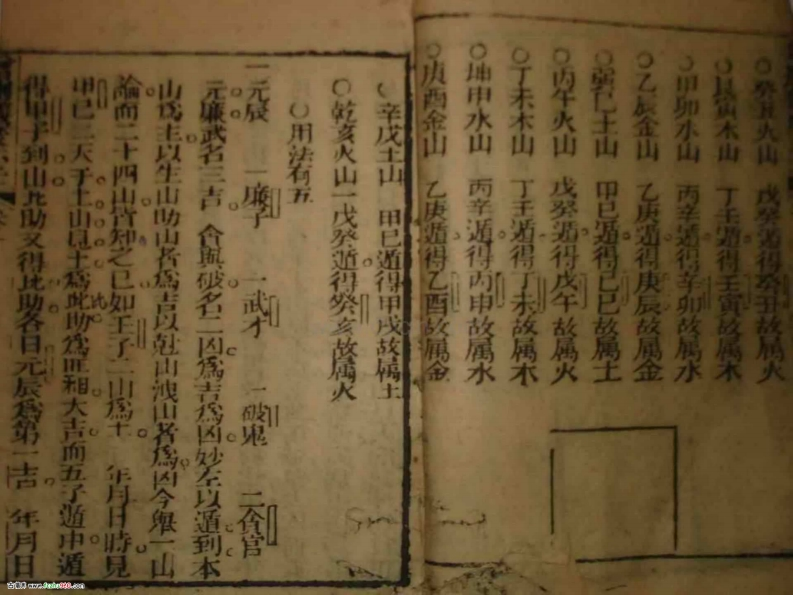 ○癸丑火山　戊癸遁得癸丑故属火
○艮寅木山　丁壬遁得壬寅故属木
○甲卯木山　丙辛遁得辛卯故属木
○乙辰金山　乙庚遁得庚辰故属金
○巽巳土山　甲巳遁得巳巳故属土
○丙午火山　戊癸遁得戊午故属火
○丁未木山　丁壬遁得丁未故属木
○坤申水山　丙辛遁得丙申故属水
○庚酉金山　乙庚遁得乙酉故属金
○辛戌土山　甲巳遁得甲戌故属土
○乾亥火山　戊癸遁得癸亥故属火
○用法有五
一元辰　一廉子　一武才　一破鬼　二貪官
元廉武名三吉　貪與破名二凶為吉為凶妙在以遁到本
山為主以生山助山者為吉以尅山洩山者為凶今舉一山
論而二十四山皆知之巳如壬子二山為土　年月日時見
甲巳二天于土山見土為比助為匝廂大吉而五子遁中遁
得甲子到山比助又得比助各曰元辰為第一吉　年月日
www.